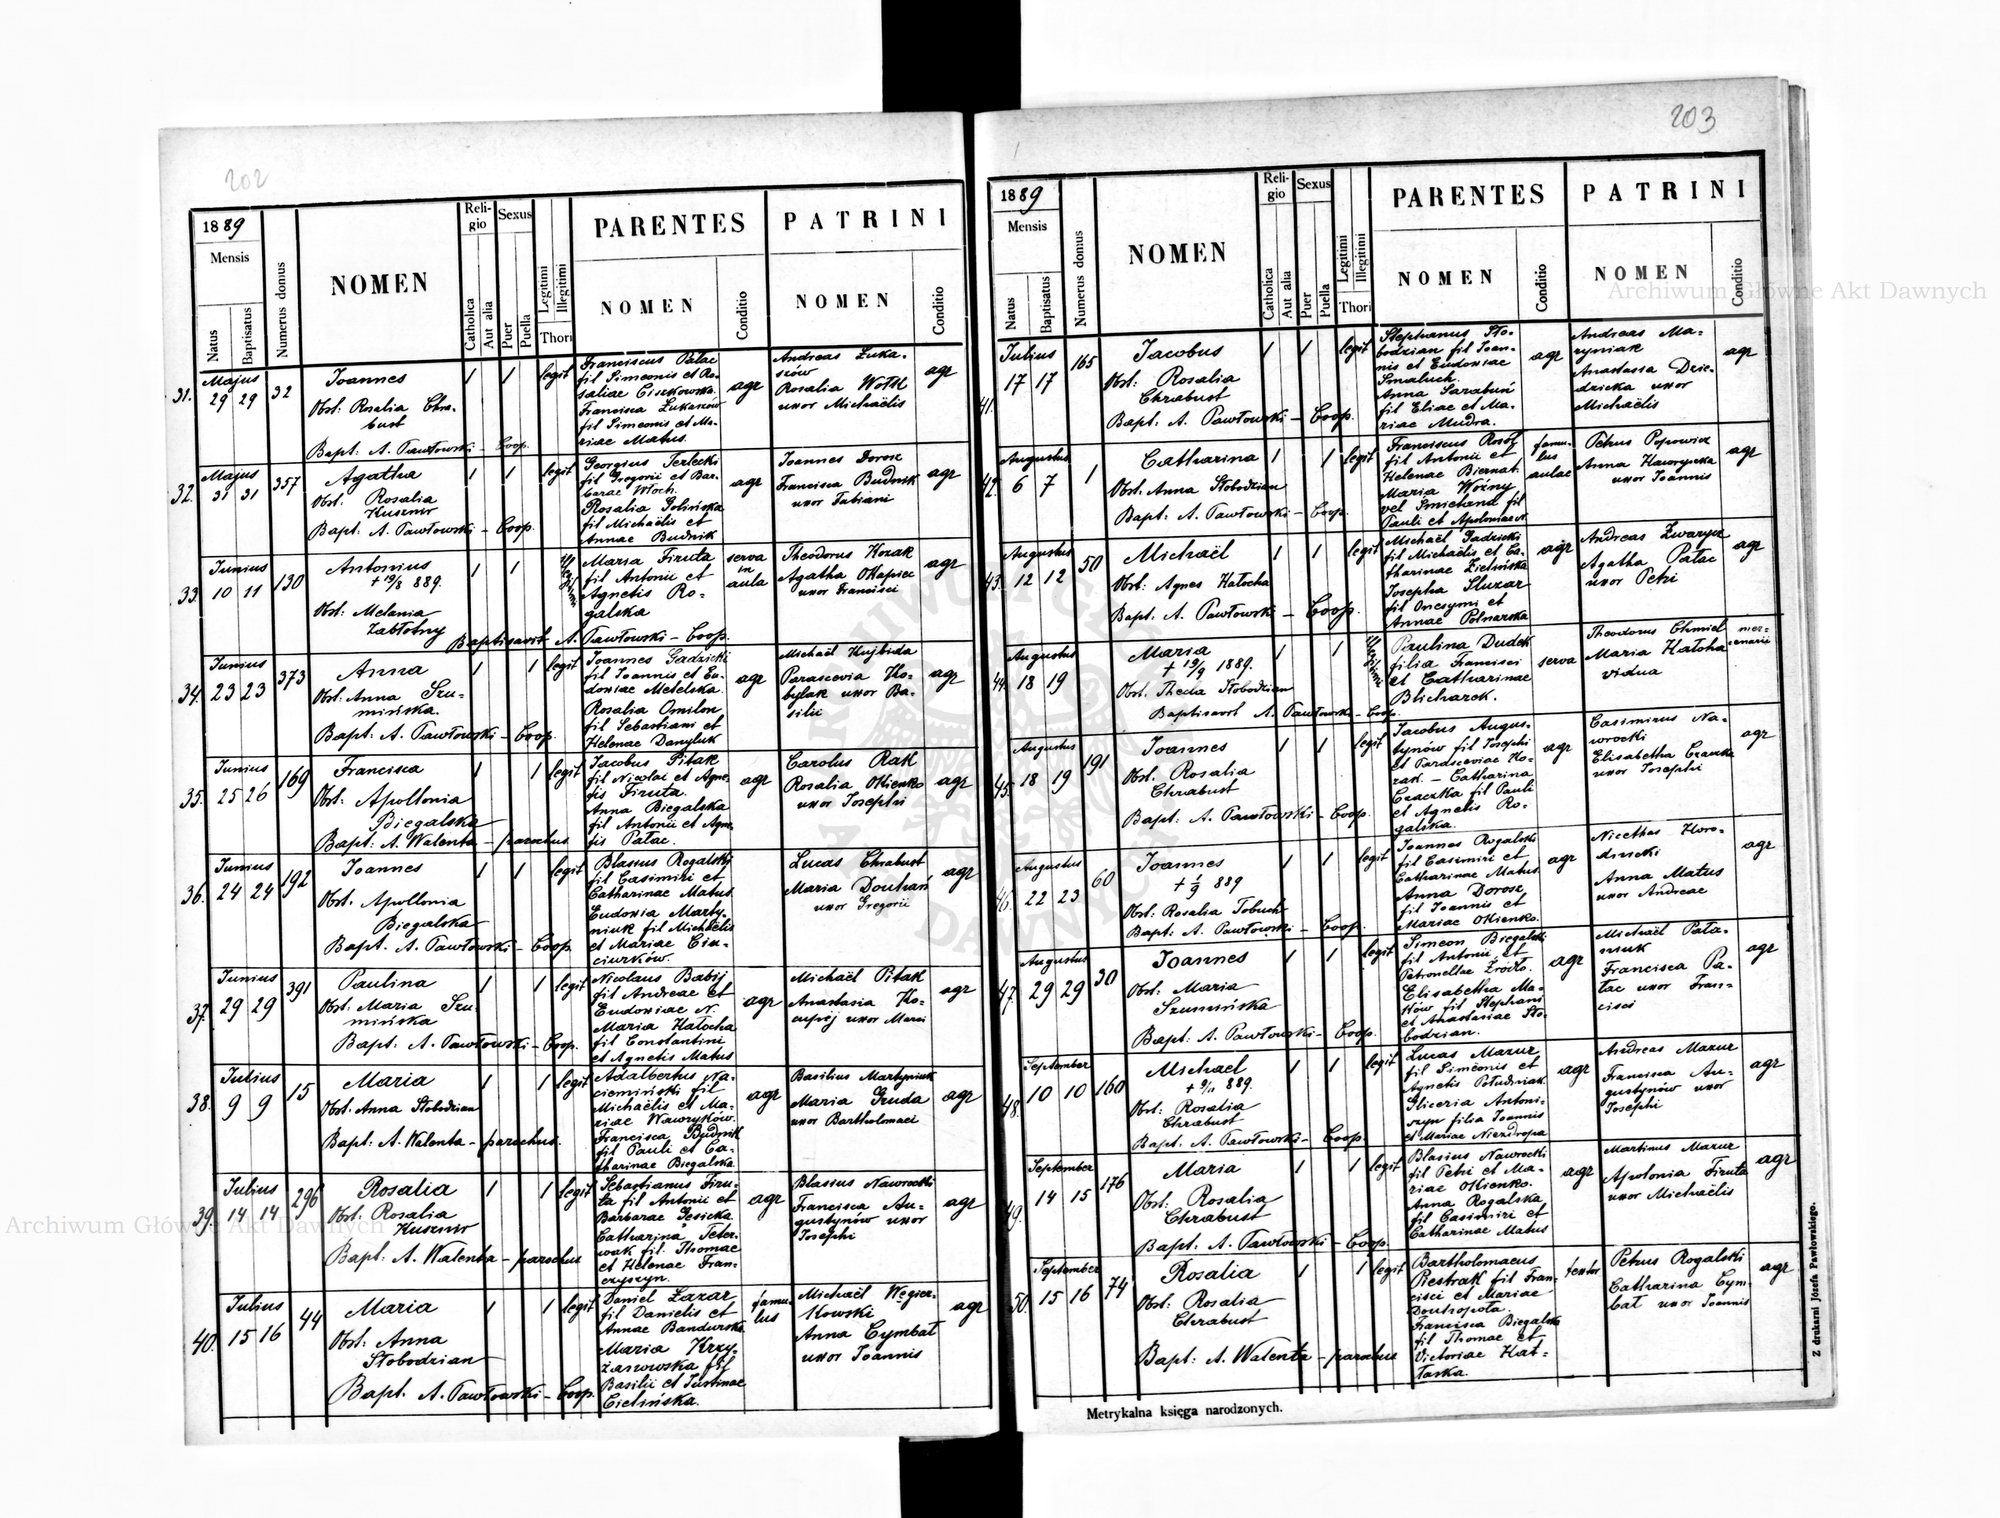 202
1889
Mensis
Natus
Baptisatus
Numerus domus
NOMEN
Religio
Catholica
Aut alia
Sexus
Puer
Puella
Legitimi
Illegitimi
Thori
PARENTES
NOMEN
Conditio
PATRINI
NOMEN
Conditio
31.
Majus
29 29
32
Joannes
Obst: Rosalia Chra-
bust
Bapt: A. Pawłowski – Coop.
1 1
legit
Franciscus Pałac
fil Simeonis et Ro-
saliae Ciszkowska.
Francisca Łukaszów
fil Simeonis et Ma-
riae Matus.
agr
Andreas Łuka-
szów
Rosalia Wołk
uxor Michaëlis
agr
32.
Majus
31 31
357
Agatha
Obst: Rosalia
Kusznir
Bapt: A. Pawłowski – Coop.
1 1
legit
Georgius Terlecki
fil Gregorii et Bar-
barae Włoch.
Rosalia Golińska
fil Michaëlis et
Annae Budnik
agr
Joannes Dorosz
Francisca Budnik
uxor Fabiani
agr
33.
Junius
10 11
130
Antonius
+ 19/8 889.
Obst: Melania
Zabłotny
Baptisavit A. Pawłowski – Coop.
1 1
illegitimi
Maria Firuta
fil Antonii et
Agnetis Ro-
galska
serva
in
aula
Theodorus Kozak
Agatha Okapiec
uxor Francisci
agr
34.
Junius
23 23
373
Anna
Obst: Anna Szu-
mińska.
Bapt: A. Pawłowski – Coop.
1 1
legit
Joannes Gadzicki
fil Joannis et Eu-
doxiae Metelska.
Rosalia Omilon
fil Sebastiani et
Helenae Danyluk
agr
Michaël Kujbida
Parascevia Ko-
bylak uxor Ba-
silii
agr
35.
Junius
25 26
169
Francisca
Obst: Apollonia
Biegalska
Bapt: A. Walenta – parochus.
1 1
legit
Jacobus Pitak
fil Nicolai et Agne-
tis Firuta.
Anna Biegalska
fil Antonii et Agne-
tis Pałac.
agr
Carolus Rak
Rosalia Okienko
uxor Josephi
agr
36.
Junius
24 24
192
Joannes
Obst. Apollonia
Biegalska
Bapt. A. Pawłowski – Coop.
1 1
legit
Blasius Rogalski
fil Casimiri et
Catharinae Matus.
Eudoxia Marty-
niuk fil Michaëlis
et Mariae Ciu-
ciurków.
Lucas Chrabust
Maria Douhań
uxor Gregorii
agr
37.
Junius
29 29
391
Paulina
Obst: Maria Szu-
mińska
Bapt: A. Pawłowski – Coop.
1 1
legit
Nicolaus Babij
fil Andreae et
Eudoxiae N.
Maria Hałocha
fil Constantini
et Agnetis Matus
agr
Michaël Pitak
Anastasia Ko-
uxor Marci
agr
38.
Julius
9 9
15
Maria
Obst: Anna Słobodzian
Bapt: A. Walenta – parochus.
1 1
legit
Adalbertus Na-
ciemiński fil
Michaëlis et Ma-
riae Wawryków.
Francisca Budnik
fil Pauli et Ca-
tharinae Biegalska
agr
Basilius Martyniuk
Maria Gruda
uxor Bartholomaei
agr
39.
Julius
14 14
296
Rosalia
Obst. Rosalia
Kusznir
Bapt: A. Walenta – parochus
1 1
legit
Sebastianus Firu-
ta fil Antonii et
Barbarae Jesicka
Catharina Teter-
wak fil. Thomae
et Helenae Fran-
czyszyn.
agr
Blasius Nawrocki
Francisca Au-
gustynów uxor
Josephi
agr
40.
Julius
15 16
44
Maria
Obst: Anna
Słobodzian
Bapt. A. Pawłowski – Coop.
1 1
legit
Daniel Łazar
fil Danielis et
Annae Bandurska
Maria Krzy-
żanowska fil
Basilii et Justinae
Cielińska.
famu-
lus
Michaël Węgier-
kowski
Anna Cymbał
uxor Joannis
agr
203
1889
Mensis
Natus
Baptisatus
Numerus domus
NOMEN
Religio
Catholica
Aut alia
Sexus
Puer
Puella
Legitimi
Illegitimi
Thori
PARENTES
NOMEN
Conditio
PATRINI
NOMEN
Conditio
41.
Julius
17 17
165
Jacobus
Obst: Rosalia
Chrabust
Bapt: A. Pawłowski – Coop.
1 1
legit
Stephanus Sło-
bodzian fil Joan-
nis et Eudoxiae
Smaluch.
Anna Sarabuń
fil Eliae et Ma-
riae Mudra.
agr
Andreas Ma-
ryniak
Anastasia Dzie-
dzicka uxor
Michaëlis
agr
42.
Augustus
6 7
1
Catharina
Obst. Anna Słobodzian
Bapt: A. Pawłowski – Coop.
1 1
legit
Franciscus Rosół
fil Antonii et
Helenae Biernat.
Maria Woźny
vel Smichand fil
Pauli et Apoloniae N.
famu-
lus
aulae
Petrus Popowicz
Anna Hawrycka
uxor Joannis
agr
43.
Augustus
12 12
50
Michaël
Obst: Agnes Hałocha
Bapt: A. Pawłowski – Coop.
1 1
legit
Michaël Gadzicki
fil Michaëlis et Ca-
tharinae Zielińska
Josepha Sluzar
fil Onesymi et
Annae Polnarska
agr
Andreas Zwarycz
Agatha Pałac
uxor Petri
agr
44.
Augustus
18 19
Maria
+ 19/9 1889.
Obst. Thecla Słobodzian
Baptisavit A. Pawłowski – Coop.
1 1
illegitimi
Paulina Dudek
filia Francisci
et Catharinae
Blicharz.
serva
Theodorus Chmiel
Maria Hałoha
vidua
mer-
cenarii
45.
Augustus
18 19
191
Joannes
Obst. Rosalia
Chrabust
Bapt: A. Pawłowski – Coop.
1 1
legit
Jacobus Augus-
tynów fil Josephi
et Parasceviae Ko-
zak. – Catharina
Czaczka fil Pauli
et Agnetis Ro-
galska.
agr
Casimirus Na-
wrocki
Elisabetha Czaczka
uxor Josephi
agr
46.
Augustus
22 23
60
Joannes
+ 1/9 889
Obst: Rosalia Tobuch
Bapt: A. Pawłowski – Coop.
1 1
legit
Joannes Rogalski
fil Casimiri et
Catharinae Matus
Anna Dorosz
fil Joannis et
Mariae Okienko.
agr
Nicethas Horo-
dnicki
Anna Matus
uxor Andreae
agr
47.
Augustus
29 29
30
Joannes
Obst: Maria
Szumińska
Bapt: A. Pawłowski – Coop.
1 1
legit
Simeon Biegalski
fil Antonii et
Petronellae Źródło.
Elisabetha Ma-
ków fil Stephani
et Anastasiae Sło-
bodzian.
agr
Michaël Pała-
niuk
Francisca Pa-
łac uxor Fran-
cisci
agr
48.
September
10 10
160
Michael
+ 9/11 889.
Obst: Rosalia
Chrabust
Bapt: A. Pawłowski – Coop.
1 1
legit
Lucas Mazur
fil Simeonis et
Agnetis Południak.
Gliceria Antoni-
szyn filia Joannis
et Mariae Niezdropa
agr
Andreas Mazur
Francisca Au-
gustynów uxor
Josephi
agr
49.
September
14 15
176
Maria
Obst: Rosalia
Chrabust
Bapt: A. Pawłowski – Coop.
1 1
legit
Blasius Nawrocki
fil Petri et Ma-
riae Okienko.
Anna Rogalska
fil Casimiri et
Catharinae Matus
agr
Martinus Mazur
Apolonia Firuta
uxor Michaëlis
agr
50.
September
15 16
74
Rosalia
Obst: Rosalia
Chrabust
Bapt: A. Walenta – parochus
1 1
legit
Bartholomaeus
Restrak fil Fran-
cisci et Mariae
Doutropota.
Francisca Biegalska
fil Thomae et
Victoriae Hat-
łaska.
textor
Petrus Rogalski
Catharina Cym-
bał uxor Joannis
agr
Metrykalna księga narodzonych.
Z drukarni Józefa Pawłowskiego.
Archiwum Główne Akt Dawnych
Archiwum Główne Akt Dawnych